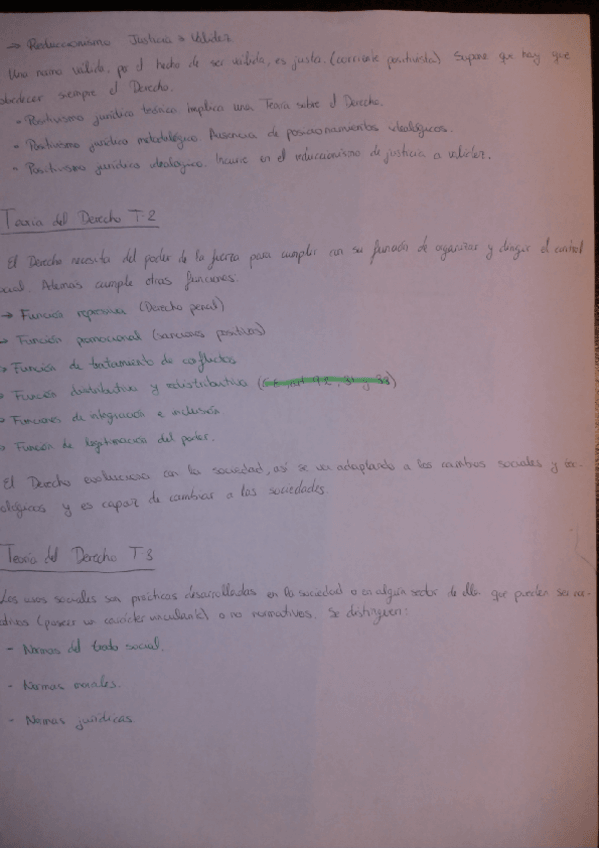 → Reduccionismo Justicia a Validez
Una norma válida, por el hecho de ser válida, es justa. (corriente positivista). Supone que hay que
obedecer siempre el Derecho.
- Positivismo jurídico teórico. Implica una Teoría sobre el Derecho.
- Positivismo jurídico metodológico. Ausencia de posicionamientos ideológicos.
- Positivismo jurídico ideológico. Incurre en el reduccionismo de justicia a validez.
Teoría del Derecho T-2
El Derecho necesita del poder de la fuerza para cumplir con su función de organizar y dirigir el control
social. Ademas cumple otras funciones:
→ Función represiva (Derecho penal)
→ Función promocional (sanciones positivas)
→ Función de tratamiento de conflictos
→ Función distributiva y redistributiva (CE, art 9.2, 31 y 33)
→ Funciones de integración e inclusión
→ Función de legitimación del poder.
El Derecho evoluciona con la sociedad, así se va adaptando a los cambios sociales y
y es capaz de cambiar a las sociedades.
Teoría del Derecho T-3
Los usos sociales son prácticas desarrolladas en la sociedad o en algún sector de ella que pueden ser nor-
mativos (poseer un carácter vinculante) o no normativos. Se distinguen:
- Normas del trato social.
- Normas morales.
- Normas jurídicas.